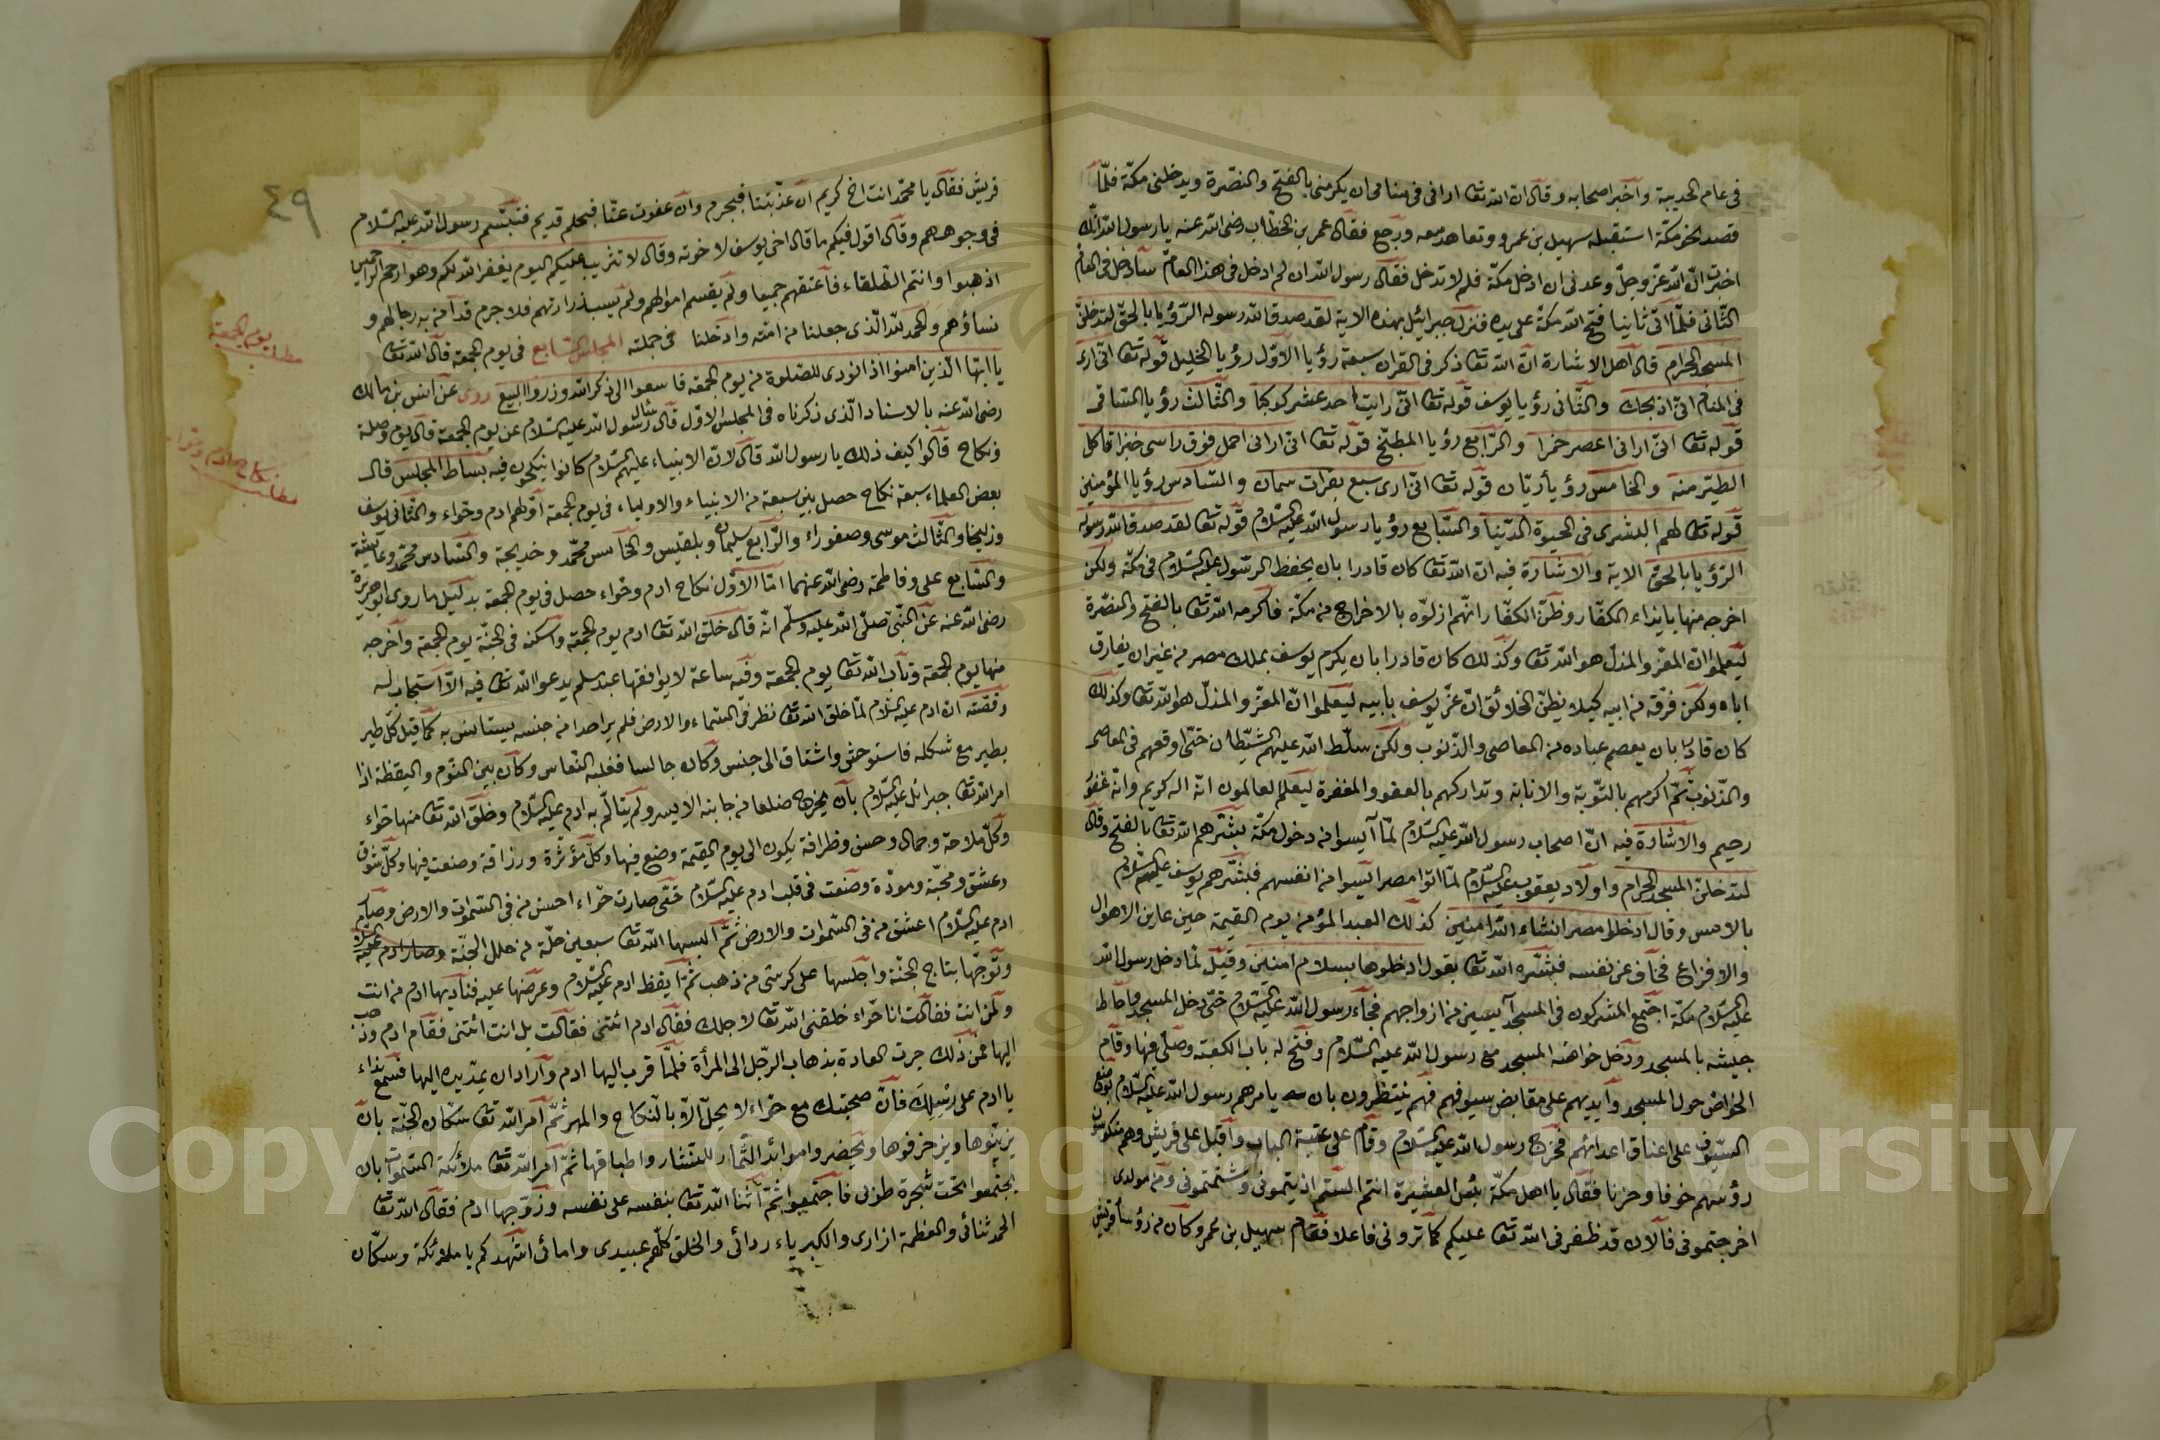 فى عام الحديبية وأخبر اصحابه وقال ان الله تعا ارانى فى منامى ان يكرمنى بالفتح والنصرة ويدخلنى مكّة فلمّا
قصد نحو مكة استقبله سهيل بن عمرو وتعاهد معه ورجع فقال عمر بن الخطاب رضى الله عنه يا رسول الله انّك
اخبرت انّ الله عزّ وجلّ وعدنى ان ادخل مكّة فلم لا تدخل فقال رسول الله ان لم ادخل فى هذا العام سأدخل فى العام
الثّانى فلمّا اتى ثانيا فتح الله مكة على يده فنزل جبرائيل بهذه الاية لقد صدق الله رسوله الرّؤيا بالحق لتدخلنّ
المسجد الحرام قال اهل الاشارة انّ الله تعا ذكر فى القران سبعة رؤيا الاوّل رؤيا الخليل قوله تعا انّى ارى
فى المنام انّى اذبحك والثّانى رؤيا يوسف قوله تعا انّى رايت احد عشر كوكبا والثّالث رؤيا السّاقى
قوله تعا انّى ارانى اعصر خمرا والرّابع رؤيا المطبّخ قوله تعا انى ارانى احمل فوق راسى خبزا تاكل
الطير منه والخامس رؤيا ريّان قوله تعا انّى ارى سبع بقرات سمان والسّادس رؤيا المؤمنين
قوله تعا لهم البشرى فى الحيوة الدّنيا والسّابع رؤيا رسول الله عليه السّلام قوله تعا لقد صدق الله رسوله
الرّؤيا بالحق الاية والاشارة فيه انّ الله تعا كان قادرا بان يحفظ الرسول عليه السّلام فى مكّة ولكن
اخرجه منها بايذاء الكفّار وظنّ الكفّار انّهم ازلّوه بالاخراج من مكّة فاكرمه الله تعا بالفتح والنصّرة
ليعلموا انّ المعزّ والمذلّ هو الله تعا وكذلك كان قادرا بان يكرم يوسف بملك مصر من غير ان يفارق
اباه ولكن فرّقه من ابيه كيلا يظنّ الخلائق انّ عزّ يوسف بابيه ليعلموا انّ المعزّ والمذلّ هو الله تعا وكذلك
كان قادرا بان يعصم عباده من المعاصى والذّنوب ولكن سلّط الله عليهم الشّيطان حتّى اوقعهم فى المعاصى
والذّنوب ثمّ اكرمهم بالتّوبة والانابة وتداركهم بالعفو والمغفرة ليعلم العالمون انّه اله كريم وانّه غفور
رحيم والاشارة فيه انّ اصحاب رسول الله عليه السّلام لمّا آيسوا من دخول مكّة بشّرهم الله تعا بالفتح وقال
لتدخلنّ المسجد الحرام واولاد يعقوب عليه السّلام لمّا اتوا مصرا آيسوا من انفسهم فبشّرهم يوسف عليه السّلام
بالامن وقال ادخلوا مصر انشاء الله امنين كذلك العبد المؤمن يوم القيمة حين عاين الاهوال
والافزاع فخاف عن نفسه فبشّره الله تعا بقول ادخلوها بسلام امنين وقيل لمّا دخل رسول الله
عليه السّلام مكّة اجتمع المشركون فى المسجد آيسين من ازواجهم فجاء رسول الله عليه السّلام حتّى دخل المسجد فاحاط
جيشه بالمسجد ودخل خواصّه المسجد مع رسول الله عليه السّلام وفتح له باب الكعبة وصلّى فيها وقام
الخواصّ حول المسجد وايديهم على مقابض سيوفهم فهم ينتظرون بان يامرهم رسول الله عليه السّلام بوضع
السّيوف على اعناق اعدائهم فخرج رسول الله عليه السّلام وقام على عتبة الباب واقبل على قريش وهم منكوسون
رؤسهم خوفا وحزنا فقال يا اهل مكّة بئس العشيرة انتم الستم اذيتمونى وشتمتمونى ومن مولدى
اخرجتمونى فالان قد ظفرنى الله تعا عليكم كما ترونى فاعلا فقام سهيل بن عمرو وكان من رؤساء قريش
٤٩
قريش فقال يا محمّد انت اخ كريم ان عذّبتنا فبجرم وان عفوت عنّا فبحلم قديم فتبسّم رسول الله عليه السّلام
فى وجوههم وقال اقول فيكم ما قال اخى يوسف لاخوته وقال لا تثريب عليكم اليوم يغفر الله لكم وهو ارحم الرّاحمين
اذهبوا وانتم الطّلقاء فاعتقهم جميعا ولم يقسم اموالهم ولم يسب ذراريهم فلا جرم قد آمن به رجالهم و
نساؤهم والحمد لله الّذى جعلنا من امّته وادخلنا فى جملته المجلس السّابع فى يوم الجمعة قال الله تعا
مطلب يوم الجمعة
يا ايّها الّذين امنوا اذا نودى للصّلوة من يوم الجمعة فاسعوا الى ذكر الله وذروا البيع روى عن انس بن مالك
رضى الله عنه بالاسناد الّذى ذكرناه فى المجلس الاوّل قال سئل رسول الله عليه السّلام عن يوم الجمعة قال يوم وصلة
ونكاح قالوا كيف ذلك يا رسول الله قال لانّ الانبياء عليهم السّلام كانوا ينكحون فيه بساط المجلس قال
مطلب نكاح ادم وحواء
بعض العلماء سبعة نكاح حصل بين سبعة من الانبياء والاولياء فى يوم الجمعة اوّلهم ادم وحوّاء والثّانى يوسف
وزليخا والثّالث موسى وصفوراء والرّابع سليمان وبلقيس والخامس محمّد وخديجة والسّادس محمّد وعايشة
والسّابع على وفاطمة رضى الله عنهما امّا الاوّل نكاح ادم وحوّاء حصل فى يوم الجمعة بدليل ما روى ابو هريرة
رضى الله عنه عن النّبىّ صلّى الله عليه وسلّم انّه قال خلق الله تعا ادم يوم الجمعة واسكنه فى الجنّة يوم الجمعة واخرجه
منها يوم الجمعة وتاب الله تعا يوم الجمعة وفيه ساعة لا يوافقها عبد مسلم يدعو الله تعا فيه الّا استجاب له
وقصّته انّ ادم عليه السّلام لمّا خلق الله تعا نظر فى السّماء والارض فلم ير احدا من جنسه يستانس به كما قيل كلّ طير
يطير مع شكله فاستوحش واشتاق الى جنس وكان جالسا فغلبه النّعاس وكان بين النّوم واليقظة اذا
امر الله تعا جبرائل عليه السّلام بان يخرج ضلعا من جانبه الايسر ولم يتالّم به ادم عليه السّلام وخلق الله تعا منها حوّاء
وكلّ ملاحة وجمال وحسن وظرافة يكون الى يوم القيمة وضع فيها وكلّ مؤثرة ورزاقة وضعت فيها وكلّ شوق
وعشق ومحبّة ومودّة وضعت فى قلب ادم عليه السّلام حتّى صارت حوّاء احسن من فى السّموات والارض وصار
ادم عليه السّلام اعشق من فى السّموات والارض ثمّ البسها الله تعا سبعين حلّة من حلل الجنّة وصار ادم عليه السّلام
وتوّجها بتاج الجنّة واجلسها على كرسّى من ذهب ثمّ ايقظ ادم عليه السّلام وعرضها عليه فناديها ادم من انت
ولمن انت فقالت انا حوّاء خلقنى الله تعا لاجلك فقال ادم ائتنى فقالت بل انت ائتنى فقام ادم وذهب
اليها فمن ذلك جرت العادة بذهاب الرّجل الى المرأة فلمّا قرب اليها ادم واراد ان يمدّ يده اليها فسمع نداء
يا ادم على رسلك فانّ صحبتك مع حوّاء لا يحلّ الّا بالنّكاح والمهر ثمّ امر الله تعا سكّان الجنّة بان
يزيّنوها ويزخرفوها ويحضروا موائد الثّمار للنّثار واطباقها ثمّ امر الله تعا ملائكة السّموات بان
يجتمعوا تحت شجرة طوبى فاجتمعوا ثمّ اثنا الله تعا بنفسه على نفسه وزوّجها ادم فقال الله تعا
الحمد ثنائى والعظمة ازارى والكبرياء ردائى والخلق كلّهم عبيدى وامائى اشهدكم يا ملائكة وسكّان
Copyright © King Saud University